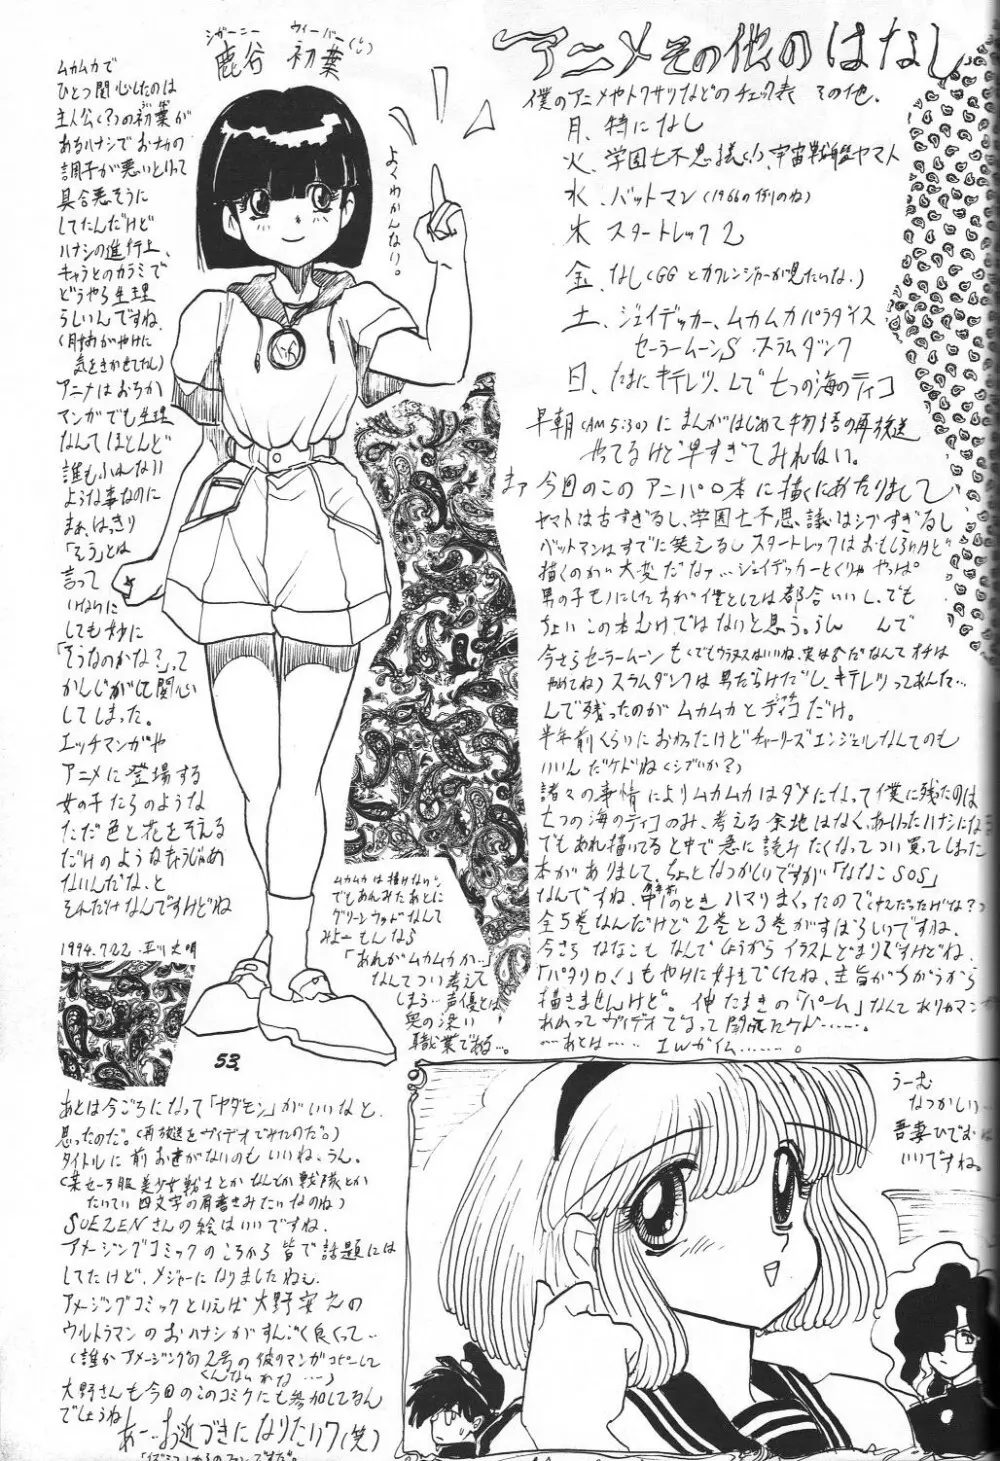 アニメその他のはなし
僕のアニメやトクサツなどのチェック表 その他.
月、特になし
火、学園七不思議(!)、宇宙戦艦ヤマト
水、バットマン(1966の作りのね)
木 スタートレック2
金、なし(GGとカクレンジャーが見たいな.)
土、ジェイデッカー、ムカムカパラダイス
セーラームーンS スラムダンク
日、たまにキテレツ、んで七つの海のティコ
早朝(AM5:30)にまんがはじめて物語の再放送
やってるけど早すぎてみれない。
まァ今回のこのアニパロ本に描くにあたりまして
ヤマトは古すぎるし、学園七不思議はシブすぎるし
バットマンはすでに笑えるし スタートレックはおもしろいけど
描くのが大変だなァ…ジェイデッカーとくりゃやっぱ
男の子モノにした方が僕としては都合いいし、でも
ちょいこの本むけではないと思う。うん んで
今さらセーラームーン
やめてね)スラムダンクは男だらけだし、キテレツってあんた…
んで残ったのがムカムカとティコだけ。
半年前くらいにおわったけどチャーリーズエンジェルなんてのも
いいんだケドね(シブいか?)
諸々の事情によりムカムカはダメになって僕に残ったのは
七つの海のティコのみ、考える余地はなく、あーいったハナシになる
でもあれ描いてると中で急に読みたくなってつい買ってしまった
本がありまして、ちょっとなつかしいですが「ななこSOS」
なんですね、中1のときハマりまくったので
全5巻なんだけど2巻と3巻がすばらしいですね.
今さらななこもなんでしょうからイラストどまりですけどね.
「パタリロ!」もやけに好きでしたね、主旨がちがうから
描きませんけど。伸たまきの「パーム」なんて
鹿谷 初葉
シガーニー ウィーバー
よくわかんない。
ムカムカで
ひとつ関心したのは
主人公(?)の初葉が
あるハナシでおナカの
調子が悪いといって
具合悪そうに
してたんだけど
ハナシの進行上、
キャラとのカラミで
どうやら生理
らしいんですね.
気をきかせてたし)
アニメはおろか
マンガでも生理
なんてほとんど
誰もふれない
ような事なのに
まぁ、はっきり
「そう」とは
言って
いないに
しても妙に
「そうなのかな?」って
かんじがして関心
してしまった。
エッチマンガや
アニメに登場する
女の子たちのような
ただ色と花をそえる
だけのようなもんじゃあ
ないんだな、と
それだけなんですけどね
1994.7.22.
ムカムカは描けない
でもあんみたあとに
グリーンウッドなんて
みよーもんなら
「あれがムカムカか…」
なんてつい考えて
しまう…声優とは
奥の深い
職業である…。
53.
あとは今ごろになって「ヤダモン」がいいなと.
思ったのだ。(再放送をヴィデオでみたのだ。)
タイトルに前おきがないのもいいね、うん。
(某セーラー服美少女戦士とかなんとか戦隊とか
たいてい四文字の肩書きみたいなのね)
SUEZENさんの絵はいいですね.
アメージングコミックのころから皆で話題には
してたけど、メジャーになりましたねぇ.
アメージングコミックといえば大野安之の
ウルトラマンのおハナシがすんごく良くって…
(誰かアメージングの2号の彼のマンガコピーして
くんないかな…)
大野さんも今回のこのコミケにも参加してるん
でしょうね
あー…お近づきになりたい?(笑)
うーむ
なつかしい…
吾妻ひでおは
いいですね。